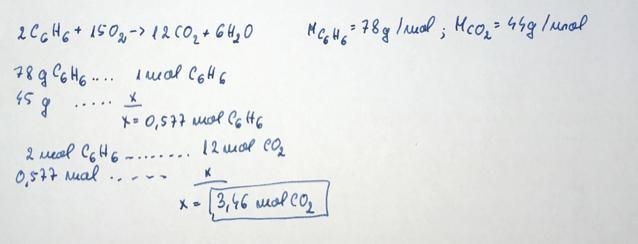 2C₆H₆ + 15O₂ -> 12CO₂ + 6H₂O M C₆H₆ = 78g/mol ; M CO₂ = 44g/mol
78g C₆H₆ .... 1 mol C₆H₆
45 g ..... x
x = 0,577 mol C₆H₆
2 mol C₆H₆ ........ 12 mol CO₂
0,577 mol ..... x
x = 3,46 mol CO₂